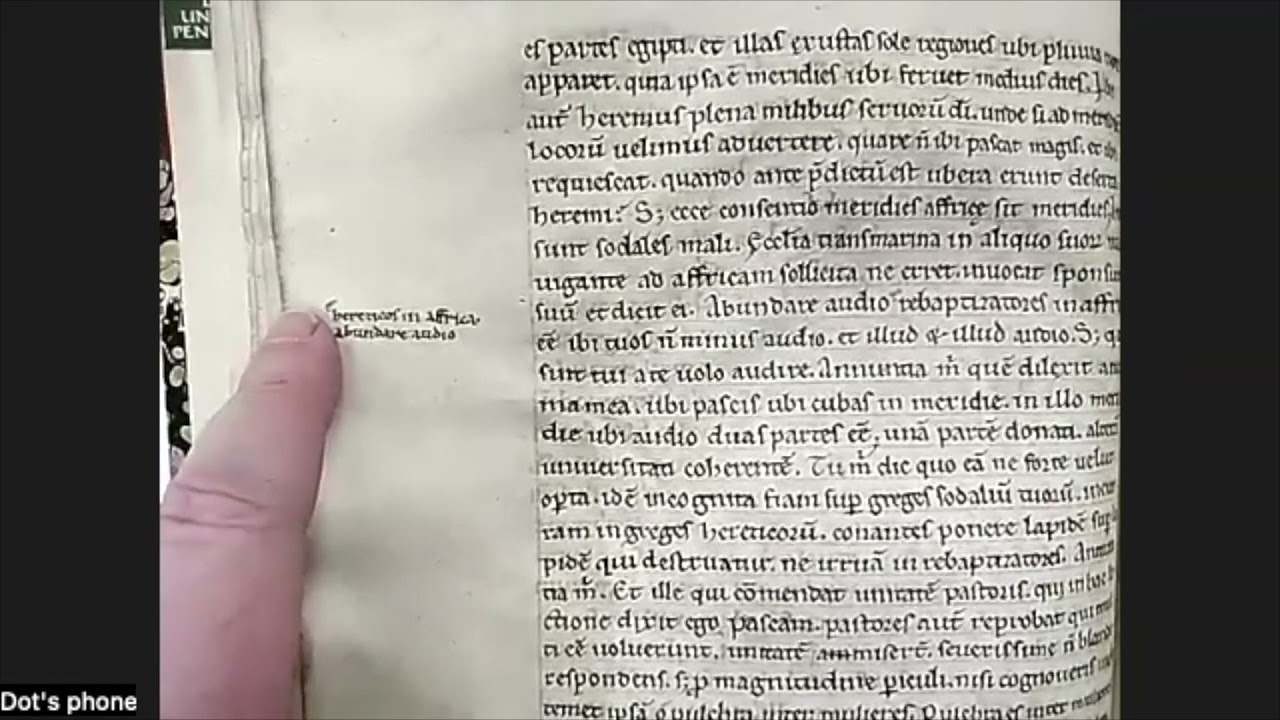 LIN
PEN
eſ parteſ egipti. et illaſ exuſtaſ ſole regioneſ ubi pluuia
apparet. quia ipſa ē meridieſ ubi feruet mediuſ dieſ.
aut̄ heremuſ plena milibuſ ſeruorū di. unde ſi ad
locorū uelimuſ aduertere. quare ñ ibi paſcat magiſ. et ibi
requieſcat. quando ante p̄dictū eſt ubera erunt deſerta
heremi? S; ecce conſentio meridieſ affrice ſit meridieſ
ſunt ſodaleſ mali. Eccl̄ia tranſmarina in aliquo ſuoꝝ
uigante ad affricam ſollicita ne erret. inuocat ſponſum
ſuū et dicit ei. Abundare audio rebaptizatoreſ in affri
hereticoſ in affrica
abundare audio
eē ibi tuoſ ñ minuſ audio. et illud & illud audio. S; q
ſunt tui a te uolo audire. Annuntia m̄ quē dilexit
ma mea. ubi paſciſ ubi cubaſ in meridie. in illo meri
die ubi audio duaſ parteſ eē, unā partē donati. alterā
uniuerſitati coherentē. Tu m̄ dic quo eā ne forte uelut
opta. idē incognita fiam ſup gregeſ ſodaliū tuorū.
ram in gregeſ hereticorū. conanteſ ponere lapidē ſup
pidē qui deſtruatur. ne irruā in rebaptizatoreſ.
tia m̄. Et ille qui cōmendat unitatē paſtoriſ. qui in hac
ctione dixit ego paſcam. paſtoreſ aut̄ reprobat qui
ti eē uoluerunt. unitatē ammiſerē. ſeueriſſime ñ
reſpondenſ. ſ; p magnitudine periculi. niſi cognoueriſ
temet ipſā o pulchra inter muliereſ. Pulchra eſ inter
Dot's phone